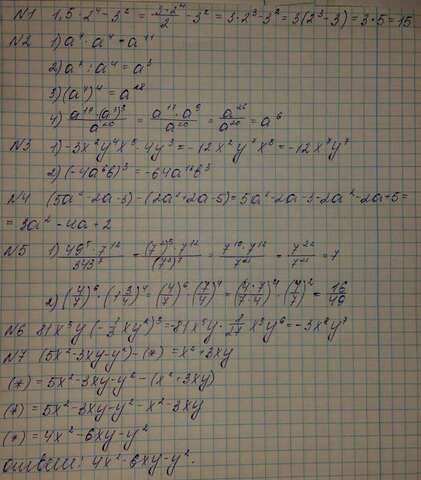 N1 1,5 · 2⁴ - 3² = 3·2⁴/2 - 3² = 3·2³-3² = 3(2³-3) = 3·5 = 15
N2 1) a⁷ · a⁴ = a¹¹
2) a⁷ : a⁴ = a³
3) (a⁷)⁴ = a²⁸
4) a¹⁷·(a³)³/a²⁰ = a¹⁷·a⁹/a²⁰ = a²⁶/a²⁰ = a⁶
N3 1) -3x²y⁴x⁵·4y³ = -12x²y⁷x⁵ = -12x⁷y⁷
2) (-4a⁶b)³ = -64a¹⁸b³
N4 (5a²-2a-3) - (2a²+2a-5) = 5a²-2a-3-2a²-2a+5 =
= 3a² - 4a + 2
N5 1) 49⁵·7¹²/343⁷ = (7²)⁵·7¹²/(7³)⁷ = 7¹⁰·7¹²/7²¹ = 7²²/7²¹ = 7
2) (4/7)⁶·(1 3/4)⁴ = (4/7)⁶·(7/4)⁴ = (4·7/7·4)⁴·(4/7)² = 16/49
N6 81x⁵y(-1/3xy²)³ = -81x⁵y · 1/27 x³y⁶ = -3x⁸y⁷
N7 (5x²-3xy-y²) - (*) = x²+3xy
(*) = 5x²-3xy-y² - (x²+3xy)
(*) = 5x²-3xy-y²-x²-3xy
(*) = 4x²-6xy-y²
ответ: 4x²-6xy-y².